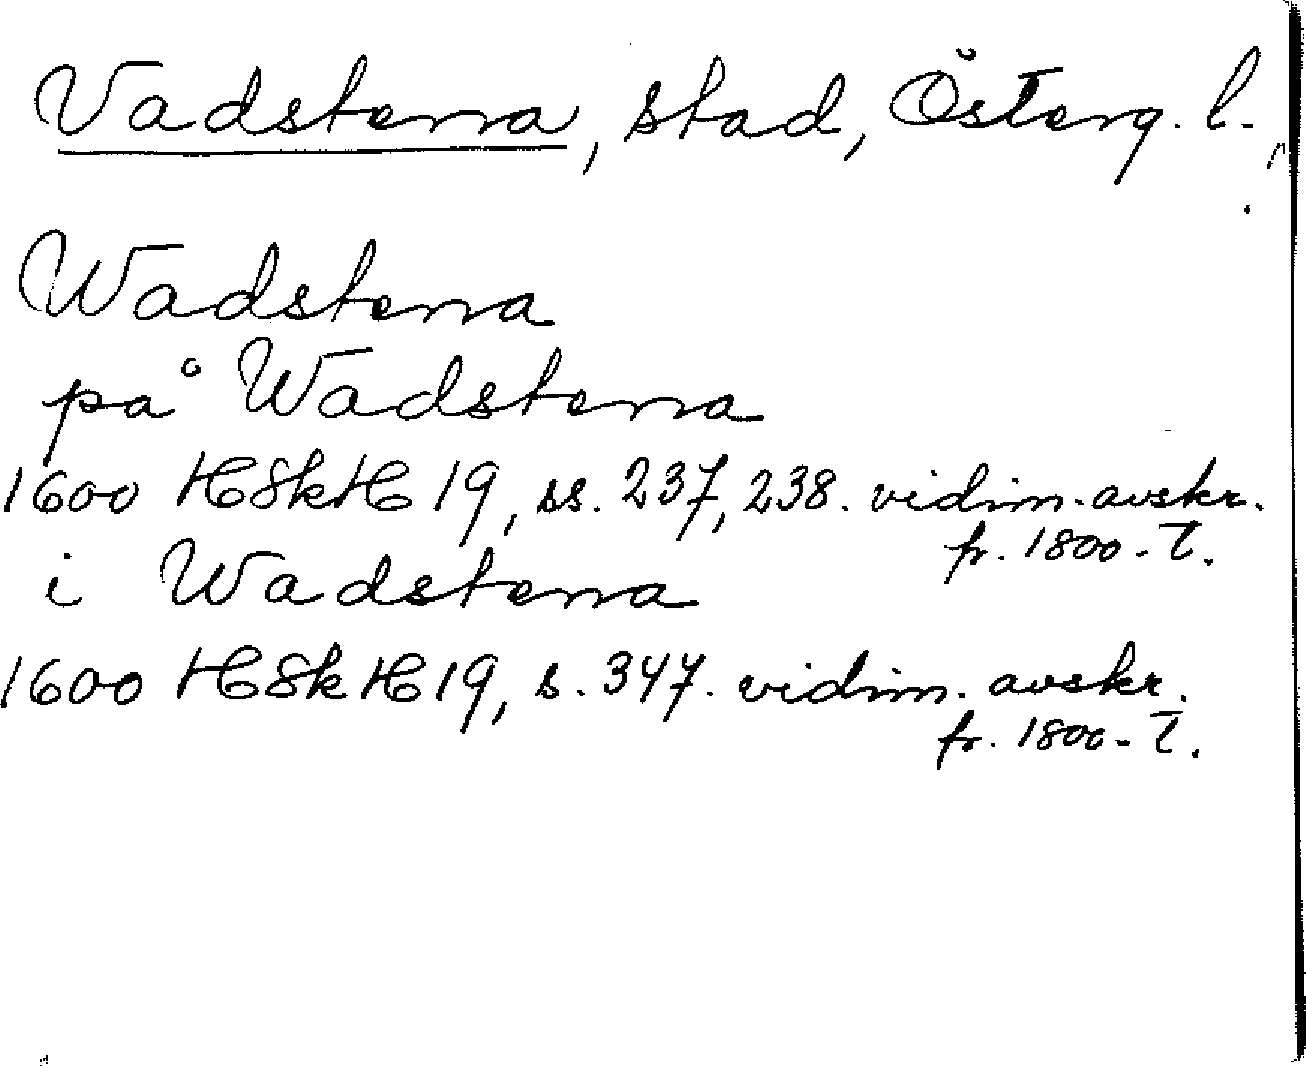 Vadstena, stad, Österg. l.
Wadstena
på Wadstena
1600 HSkH 19, ss. 237, 238. vidim. avskr.
fr. 1800-t.
i Wadstena
1600 HSkH 19, s. 347. vidim. avskr.
fr. 1800-t.